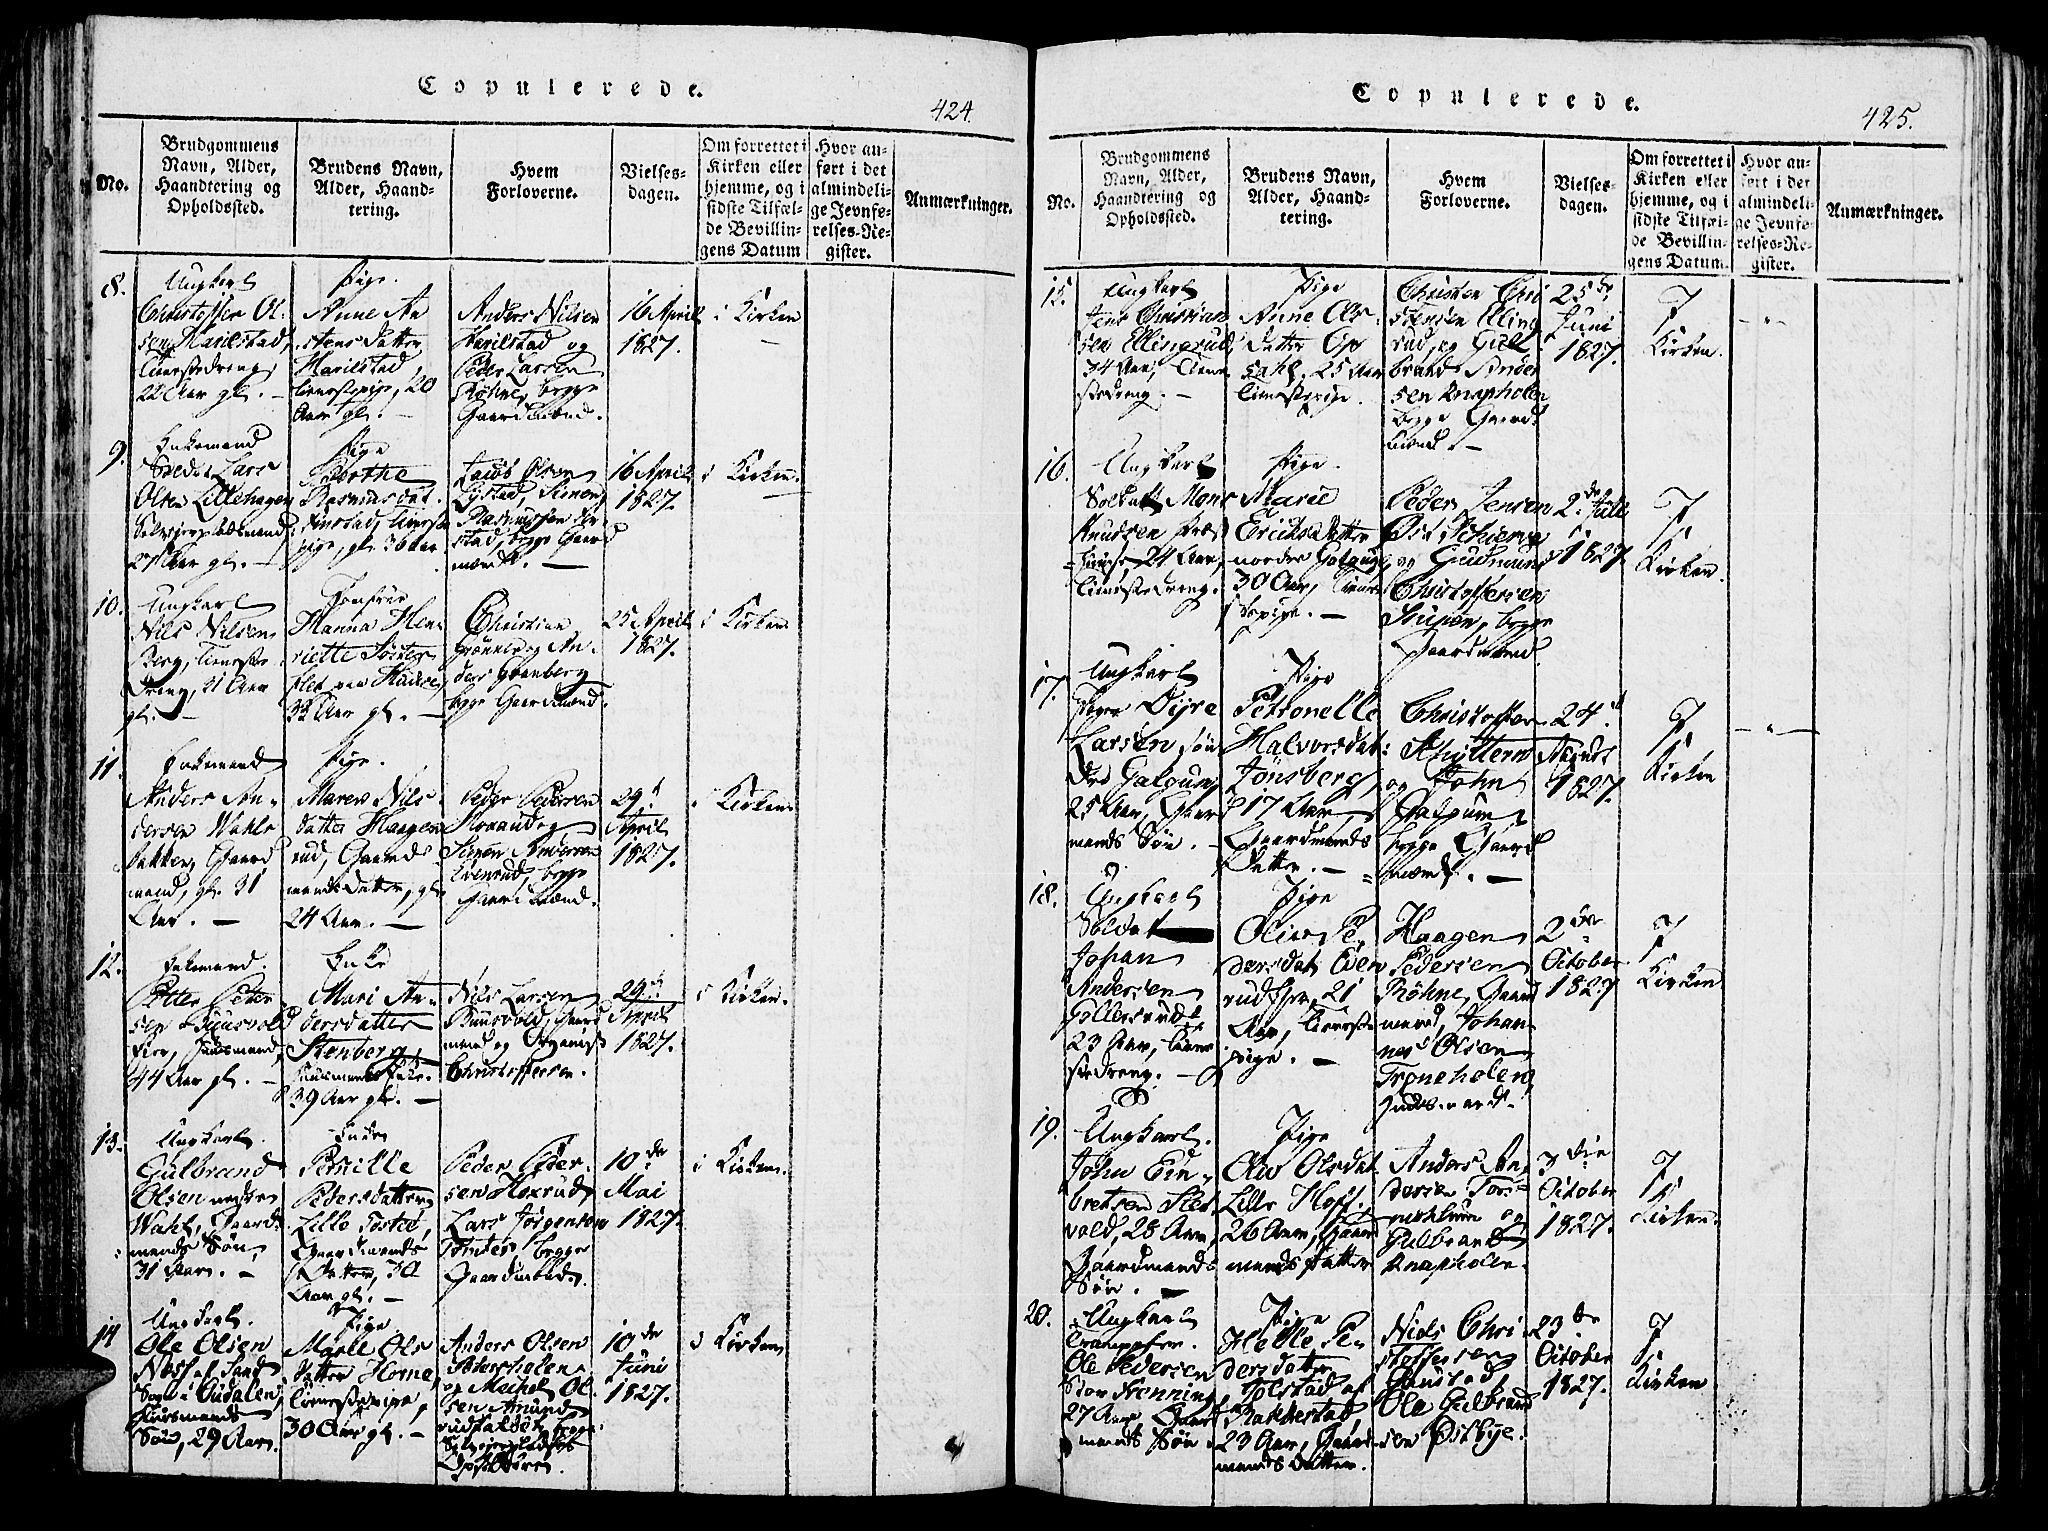 Copulerede.
424.
No.
Brudgommens
Navn, Alder,
Haandtering og
Opholdssted.
Brudens Navn,
Alder, Haand-
tering.
Hvem
Forloverne.
Vielses-
dagen.
Om forrettet i
Kirken eller
hjemme, og i
sidste Tilfæl-
de Bevillin-
gens Datum
Hvor an-
ført i det
almindeli-
ge Jevnfø-
relses-Re-
gister.
Anmærkninger.
8.
Ungkarl
Christoffer Ol-
sen Harilstad,
Tienestedreng,
22 Aar gl. —
Pige.
Anne An
stens Datter
Harilstad
Tienestepige, 20
Aar gl. —
Anders Nilsen
Harilstad og
Peder Larsen
Røhne, begge
Gaardmænd.
16 April
1827.
i Kirken
9.
Enkemand
Lars
Olsen Lillehagen
Selveierpladsmand
27 Aar gl. —
Pige
Berthe
Rasmusdat.
Tieneste
pige, gl. 36 Aar
Jacob Olsen
Simon
Rasmussen
stad, begge Gaard
mænd. —
16 April
1827.
i Kirken.
10.
Ungkarl
Nils Nilsen
Berg, Tieneste
Dreng, 31 Aar
gl. —
Jomfrue
Hanna Hen-
riette
33 Aar gl. —
Christian
Grønnæs og An-
ders Grønberg
begge Gaardmænd.
25 April
1827.
i Kirken
11.
Enkemand
Anders An-
dersen Wahls
bakken, Gaard
mand, gl. 31
Aar. —
Pige.
Maren Nils-
datter Haagen
rud, Gaard-
mands Datter, gl.
24 Aar. —
Peder Pedersen
Hoxrud og
Simon Andersen
Evenrud, begge
Gaardmænd.
29d
April
1827.
i Kirken
12.
Enkemand.
Petter Peter-
sen Buusvold
Eier, Huusmand,
44 Aar gl. —
Enke
Mari An-
dersdatter
Stenberg,
Huusmands Enke.
39 Aar gl. —
Nils Larsen
Buusvold, Gaard
mand og
Christoffersen.
29d
April
1827.
i Kirken.
13.
Ungkarl.
Gulbrand
Olsen nedre
Wahl, Gaard-
mands Søn,
31 Aar. —
Pernille
Pedersdatter
Lille
Gaardmands
Datter, 30
Aar gl. —
Peder Peder-
sen Hoxrud
Lars Jørgensen
Tomter, begge
Gaardmænd.
10de
Mai
1827.
i Kirken.
14
Ungkarl.
Ole Olsen
Søn, 29 Aar.
Pige
Marte Ols
datter Horne
Tienestepige,
30 Aar gl. —
Anders Olsen
og Michel Ol-
sen Amund
rud
10de
Juni
1827.
i Kirken
Copulerede.
425.
No.
Brudgommens
Navn, Alder,
Haandtering og
Opholdssted.
Brudens Navn,
Alder, Haand-
tering.
Hvem
Forloverne.
Vielses-
dagen.
Om forrettet i
Kirken eller
hjemme, og i
sidste Tilfæl-
de Bevillin-
gens Datum.
Hvor an-
ført i det
almindeli-
ge Jevnfø-
relses-Re-
gister.
Anmærkninger.
15.
Ungkarl
Jens Christian
sen Ellingrud
34 Aar, Tiene
stedreng. —
Pige
Anne Ols-
datter Op
sahl, 25 Aar
Tienestepige.
Christen Chri
stensen Elling
rud, og Gul-
brand Ander
sen Knapholen
begge Gaard-
mænd. —
25de
Juni
1827.
I
Kirken.
16.
Ungkarl
Soldatt Mons
Knudsen
24 Aar,
Tienestedreng.
Pige.
Marie
Ericks Datter
nordre Galgum
30 Aar, Tiene
stepige. —
Peder Jensen
og Gudmund
Christoffersen
begge
Gaardmænd.
2de Julii
1827
I
Kirken.
17.
Ungkarl
Dyre
Larsen søn
dre Galgum,
25 Aar, Gaard
mands Søn. —
Pige
Petronelle
Halvorsdat:
Jønsberg,
17 Aar,
Gaardmands
Datter. —
Christoffer
og John
Galgum
begge Gaard
mænd. —
24d
1827.
I
Kirken
18.
Ungkarl
Soldat
Johan
Andersen
Gollersrud
23 Aar, Tiene
stedreng. —
Pige
Olive Pe-
dersdat Even
rud Eier, 21
Aar, Tieneste
pige. —
Haagen
Pedersen
Røhne, Gaard
mand, Johan
nes Olsen
Troneholen,
Huusmand.
2den
October
1827
I
Kirken
19.
Ungkarl.
John Em-
bretsen Slet
vold, 28 Aar,
Gaardmands
Søn. —
Pige
Olive Olsdat
Lille Hoff,
26 Aar, Gaard
mands Datter
Anders An-
dersen
og
Gulbrand
Knapholen.
3die
October
1827.
I
Kirken.
20.
Ungkarl
Ole Pedersen
Stor Frenning,
27 Aar, Gaard
mands Søn.
Pige
Helle Pe-
dersdatter
Tolstad af
Rakkestad,
23 Aar, Gaard-
mands Datter.
Niels Chri
stoffersen
Gaustad,
Ole Gulbrand
sen Østbye.
23de
October
1827.
I
Kirken